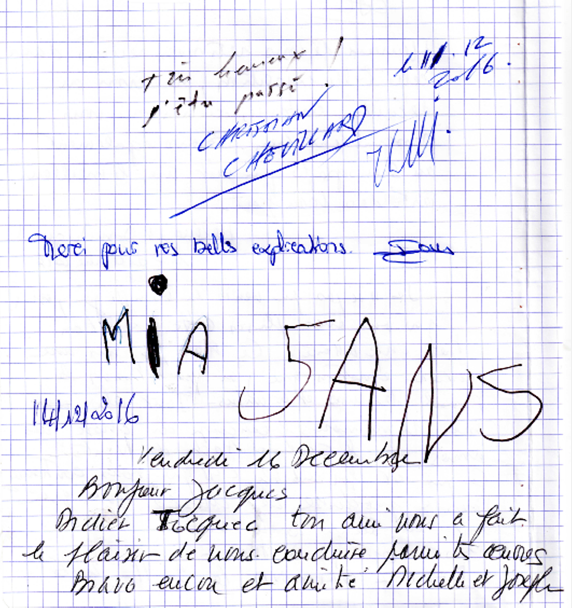 très heureux !
d'être passé.
le 11.12
2016.
CHRISTIAN
Merci pour vos bells explications.
MiA 5 ANS
14/12/2016
Vendredi 16 Décembre
Bonjour Jacques
Didier ton ami nous a fait
le plaisir de nous conduire parmi ts œuvres
Bravo encore et amitié. Michelle et Joseph